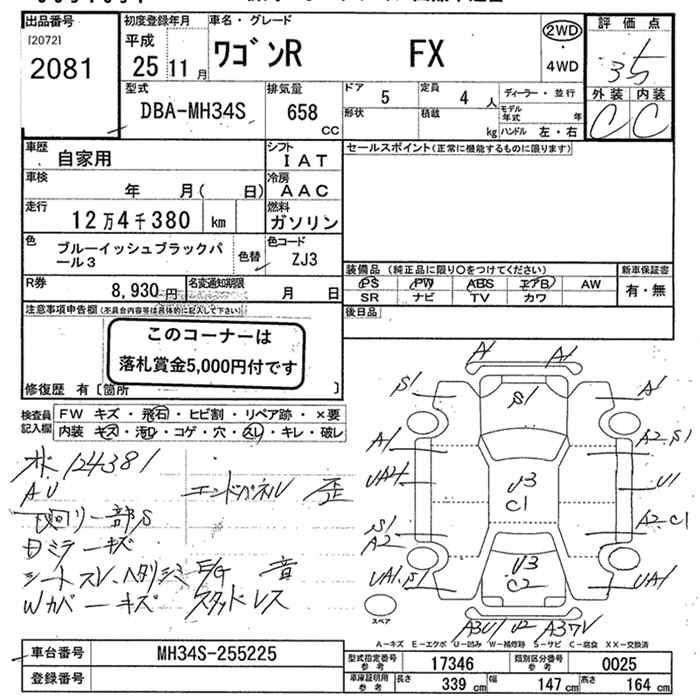 出品番号
[2072]
2081
初度登録年月
平成
25 11 月
車名・グレード
ワゴンR FX
2WD
・
4WD
評価点
3.5
外装 内装
C C
型式
DBA-MH34S
排気量
658 CC
ドア 5
定員 4 人
形状
積載 kg
ディーラー・並行
モデル年式 年
ハンドル 左・右
車歴
自家用
シフト
IAT
車検
年 月( 日)
冷房
AAC
走行
12万4千380 km
燃料
ガソリン
色
ブルーイッシュブラックパール3
色替
色コード
ZJ3
R券
8,930円
名変通知期限
月 日
セールスポイント(正常に機能するものに限ります)
装備品 (純正品に限り○をつけてください)
PS PW ABS エアB AW
SR ナビ TV カワ
新車保証書
有・無
後日品
注意事項申告欄(不具合内容等は具体的に記入して下さい)
このコーナーは
落札賞金5,000円付です
修復歴 有〔箇所 〕
検査員記入欄
FW キズ・飛石・ヒビ割・リペア跡・×要
内装 キズ・汚れ・コゲ・穴・スレ・キレ・破レ
124381
A.U エンドパネル 歪
下廻り一部S
ミラーキズ
シートスレ、ヘタリ、シミ E/G 音
Wカバーキズ スタッドレス
A A1
S1 S1 A1
A1 A2.S1
U1
U3
C1
S1 A2.C1
A2
U3
C2
UA1.S1 UA1
スペア
A3U1 U2 A3ワV
A-キズ E-エクボ U-凹み W-補修跡 S-サビ C-腐食 XX-交換済
車台番号 MH34S-255225
登録番号
型式指定番号参考 17346
類別区分番号参考 0025
車庫証明用参考
長さ 339 cm
幅 147 cm
高さ 164 cm